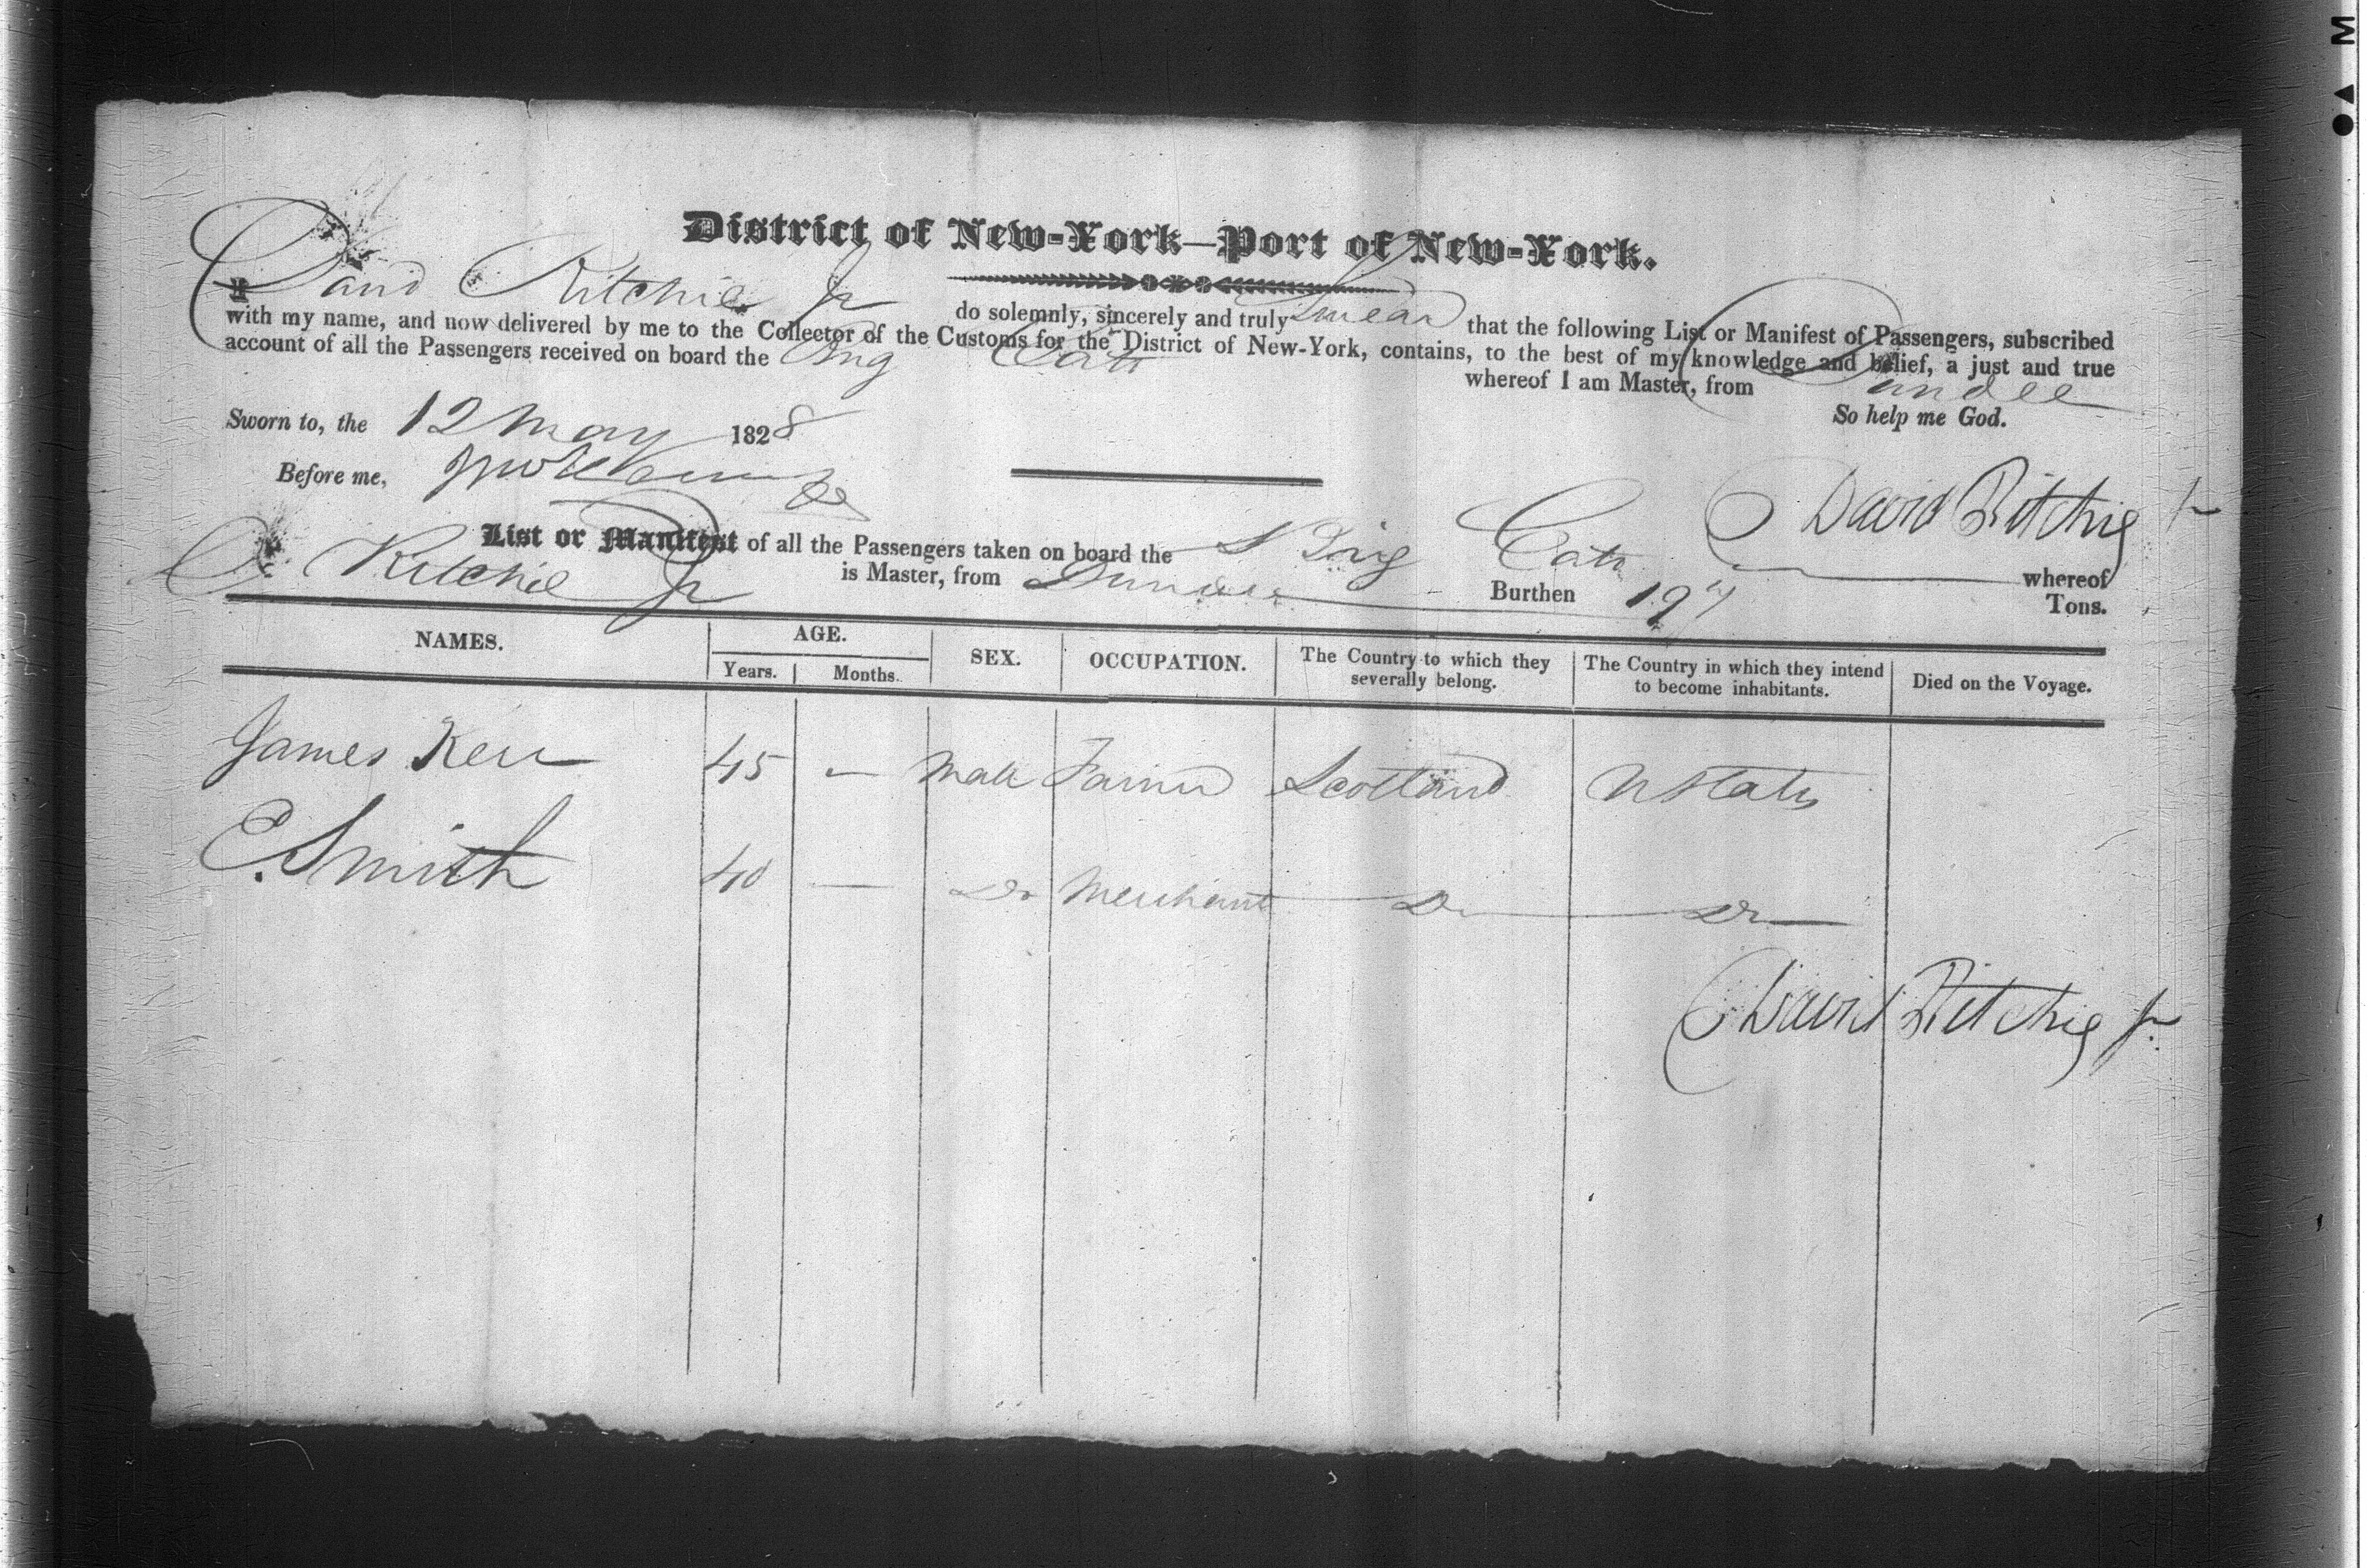 District of New-York—Port of New-York.
I David Ritchie Jr do solemnly, sincerely and truly swear that the following List or Manifest of Passengers, subscribed
with my name, and now delivered by me to the Collector of the Customs for the District of New-York, contains, to the best of my knowledge and belief, a just and true
account of all the Passengers received on board the Brig Cato whereof I am Master, from Dundee
Sworn to, the 12 May 1828 So help me God.
Before me,
David Ritchie Jr
List or Manifest of all the Passengers taken on board the Brig Cato whereof
D. Ritchie Jr is Master, from Dundee Burthen 197 Tons.
NAMES. AGE. SEX. OCCUPATION. The Country to which they severally belong. The Country in which they intend to become inhabitants. Died on the Voyage.
Years. Months.
James Kerr 45 — Male Farmer Scotland U States
E. Smith 40 — Do Merchant Do Do
David Ritchie Jr
M